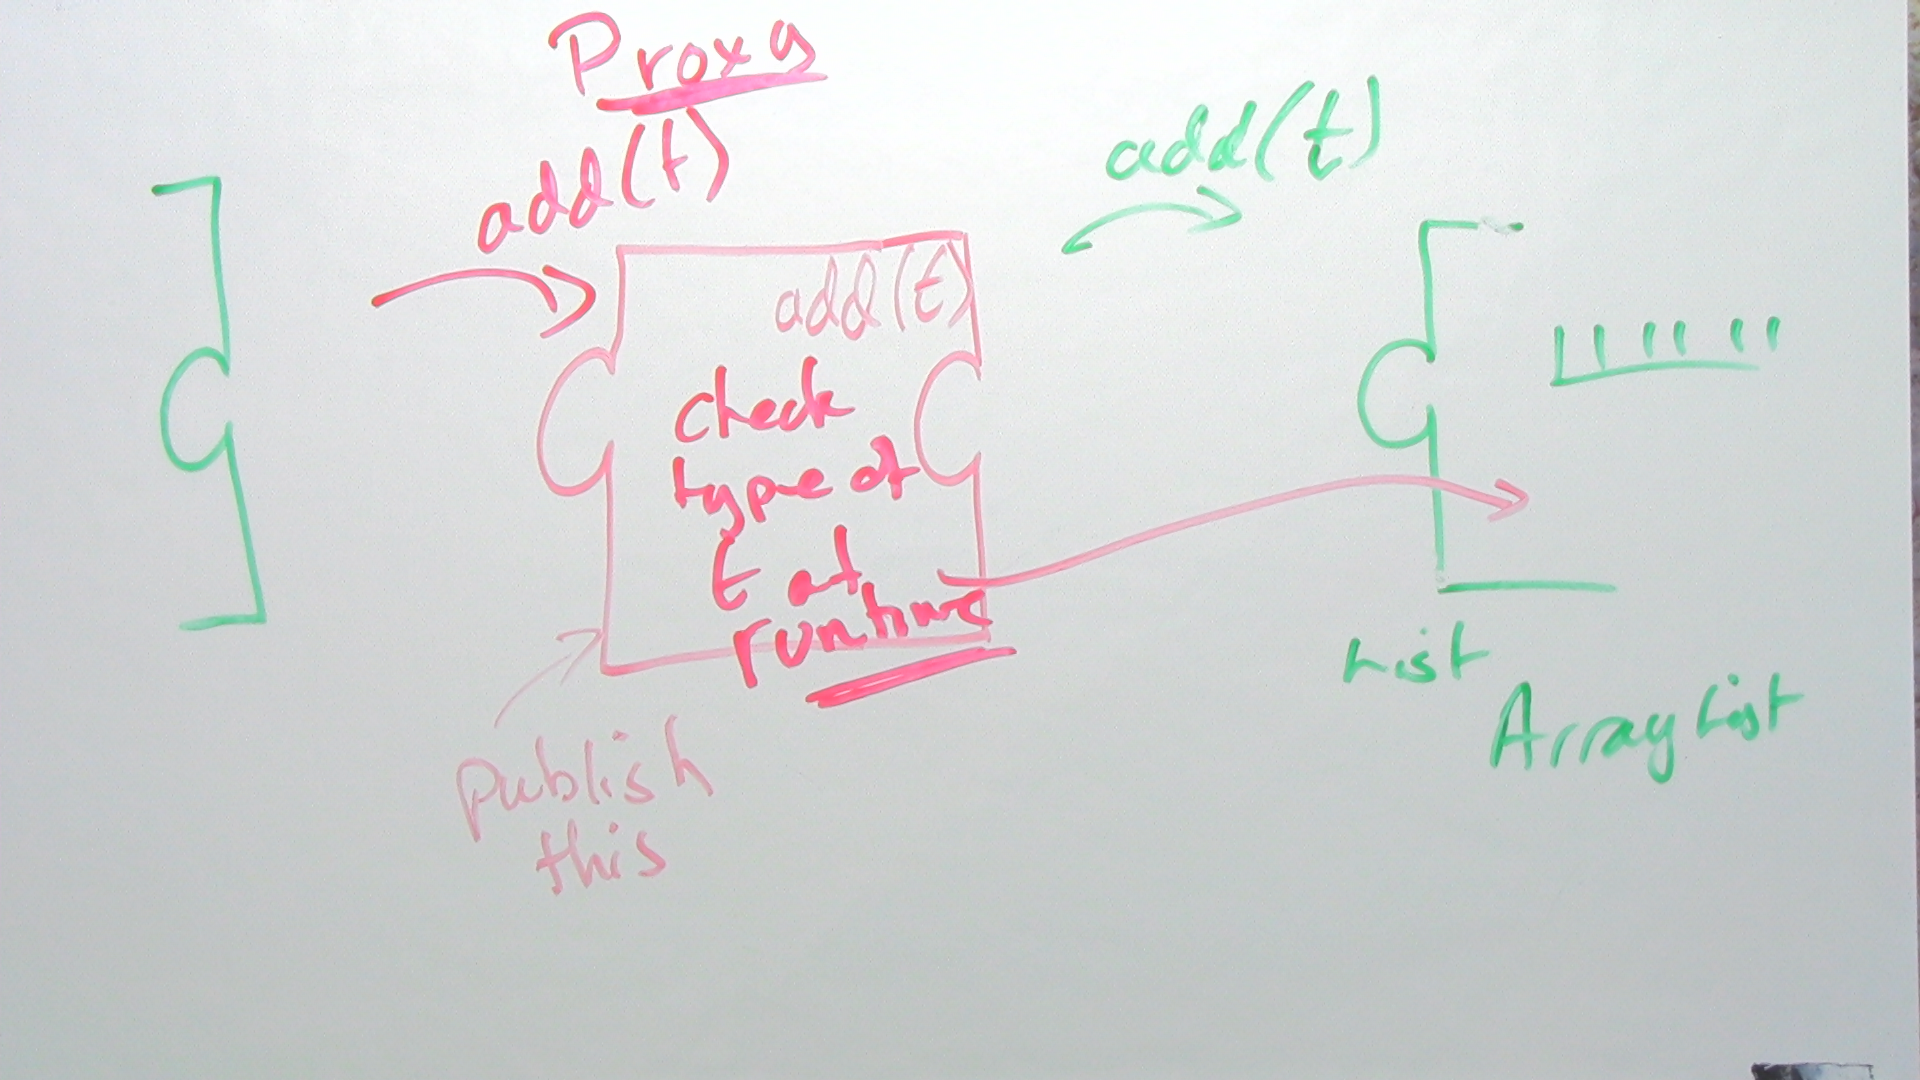 Proxy
add(t)
add(t)
add(t)
check
type of
t at
runtime
publish
this
List
ArrayList